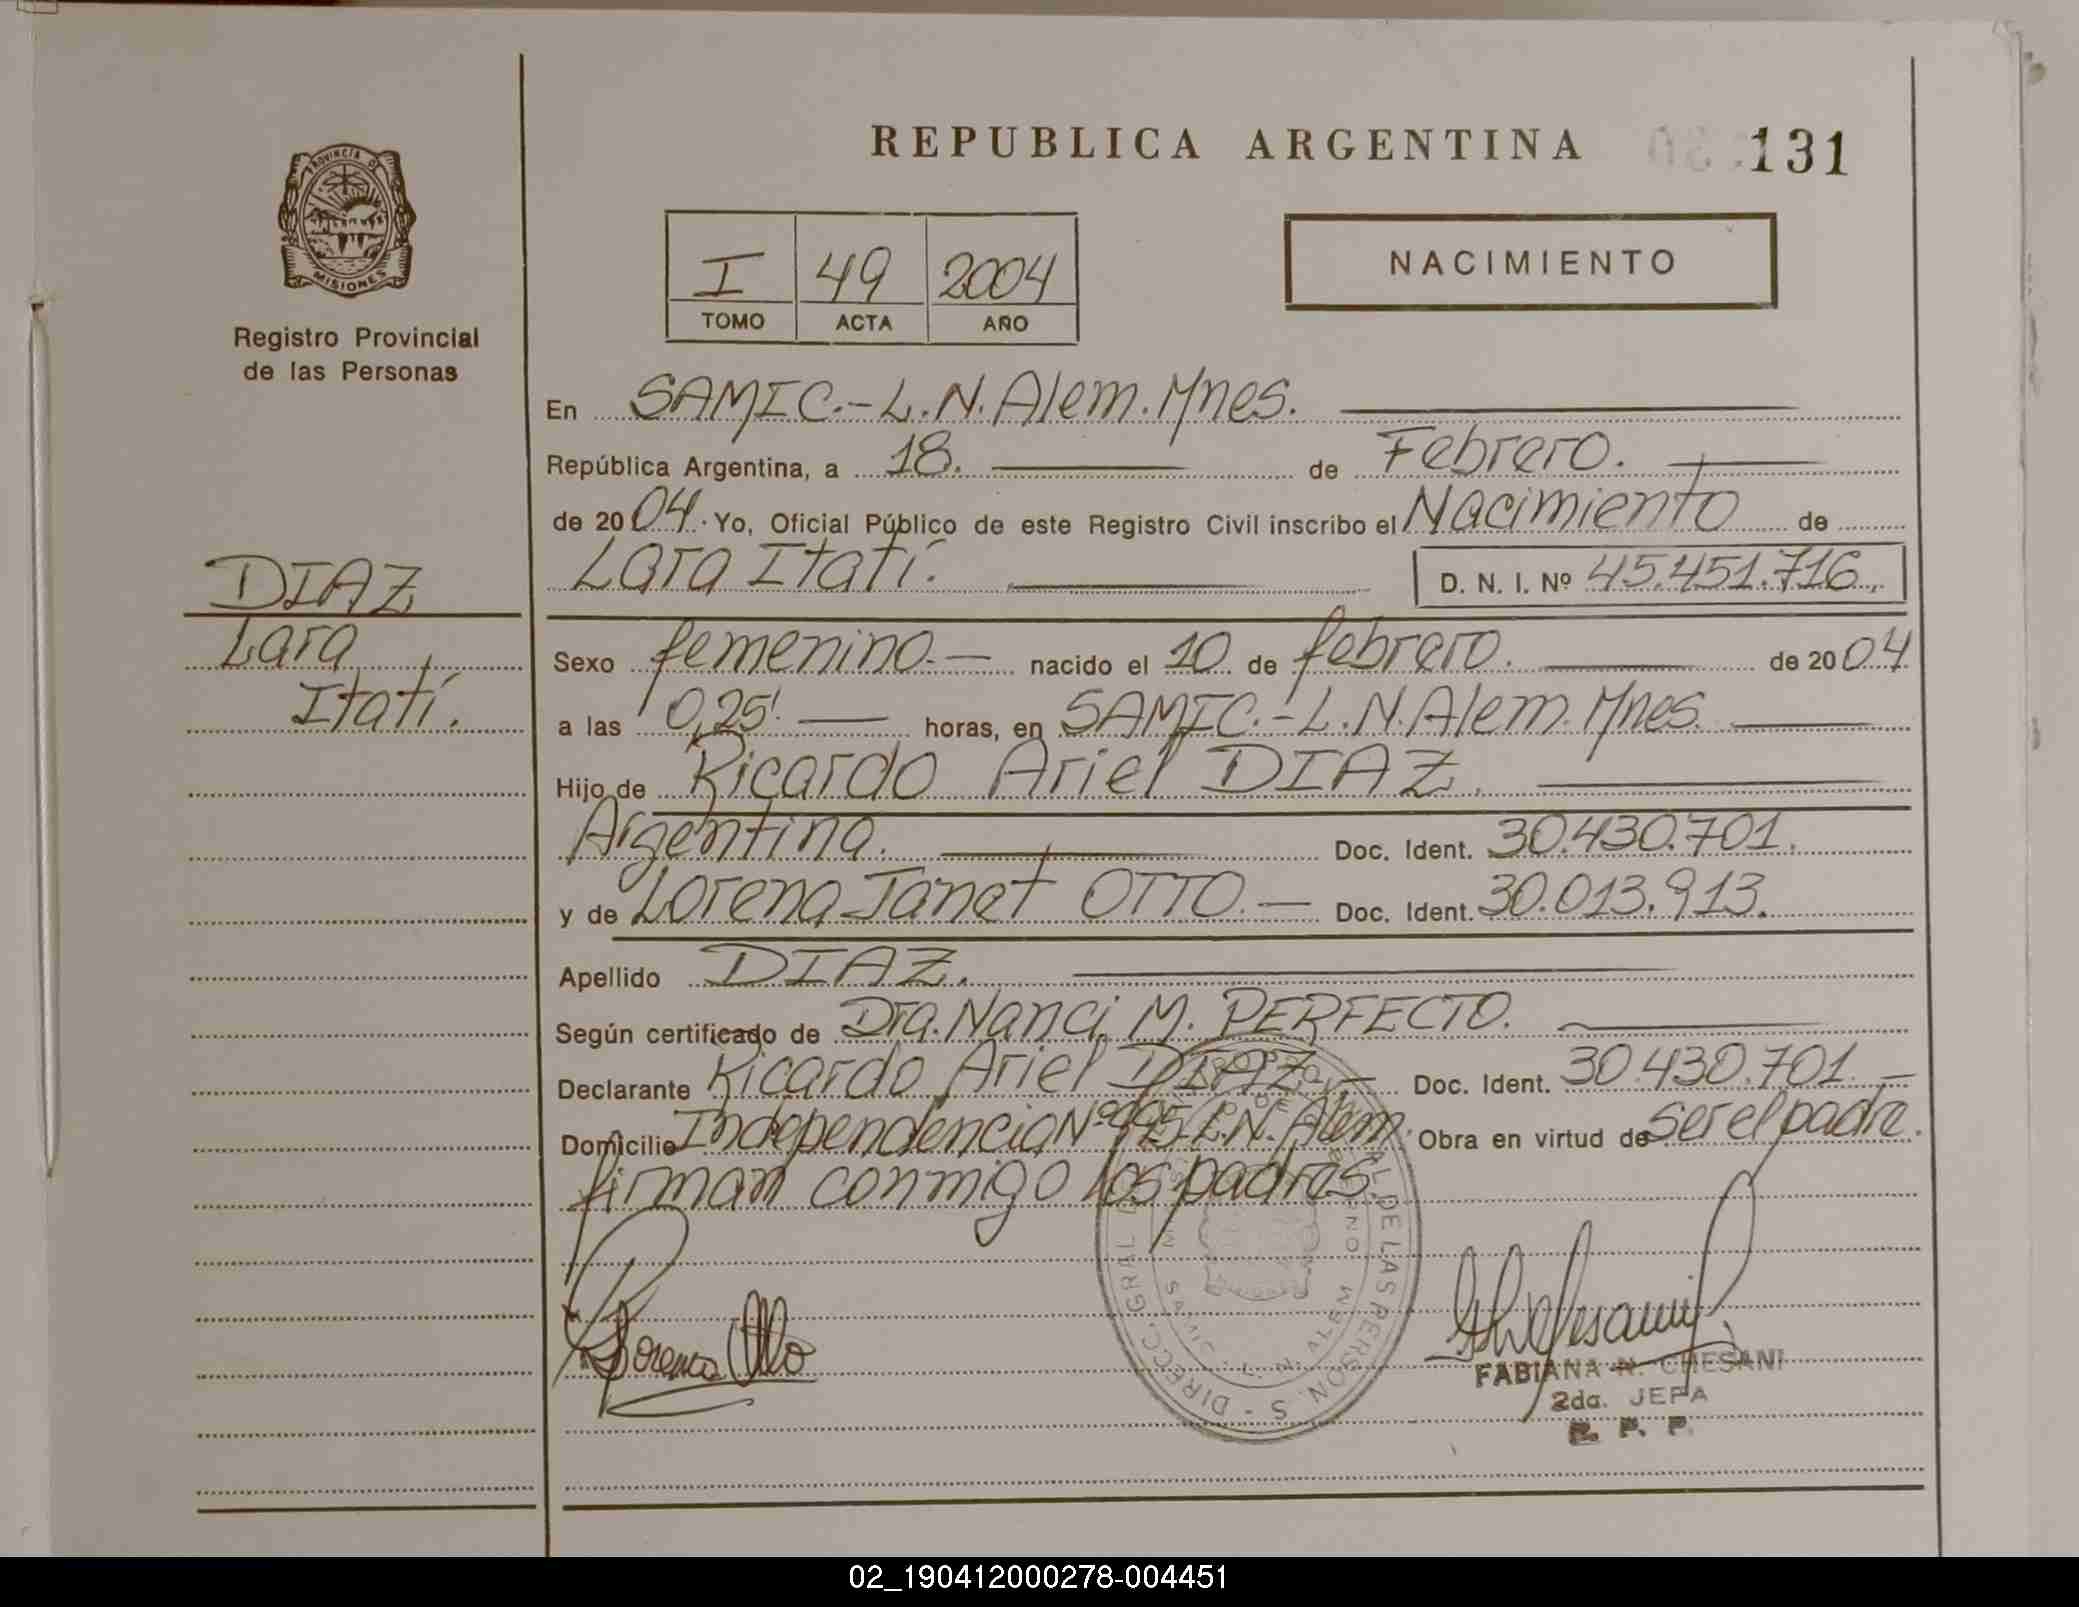 REPUBLICA ARGENTINA
131
PROVINCIA DE
MISIONES
Registro Provincial
de las Personas
I 49 2004
TOMO ACTA AÑO
NACIMIENTO
En SAMIC.-L.N.Alem.Mnes.
República Argentina, a 18. de Febrero.
de 2004. Yo, Oficial Público de este Registro Civil inscribo el Nacimiento de
Lara Itatí. D. N. I. Nº 45.451.716
DIAZ
Lara
Itatí.
Sexo femenino.- nacido el 10 de febrero. de 2004
a las 0,25'. horas, en SAMIC.-L.N.Alem.Mnes.
Hijo de Ricardo Ariel DIAZ.
Argentina. Doc. Ident. 30.430.701.
y de Lorena Janet OTTO.- Doc. Ident. 30.013.913.
Apellido DIAZ.
Según certificado de Dra. Nanci M. PERFECTO.
Declarante Ricardo Ariel DIAZ.- Doc. Ident. 30.430.701.-
Domicilio Independencia Nº L.N. Alem. Obra en virtud de ser el padre.
firman conmigo los padres.
Lorena Otto
DIRECC. GRAL DE LAS PERSON.S -
SAMIC - L. N. ALEM
FABIANA N. CHESANI
2da. JEFA
R. P. P.
02_190412000278-004451